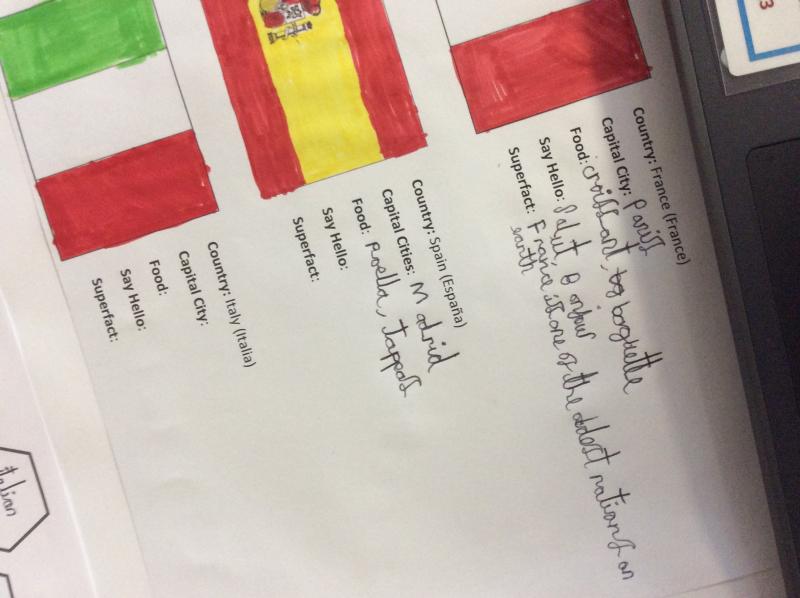 Country: France (France)
Capital City: Pariss
Food: croissant, bagguette
Say Hello: Salut, Bonjour
Superfact: France is one of the oldest nations on
earth
Country: Spain (España)
Capital Cities: Madrid
Food: Paella, tappas
Say Hello:
Superfact:
Country: Italy (Italia)
Capital City:
Food:
Say Hello:
Superfact:
italian
3